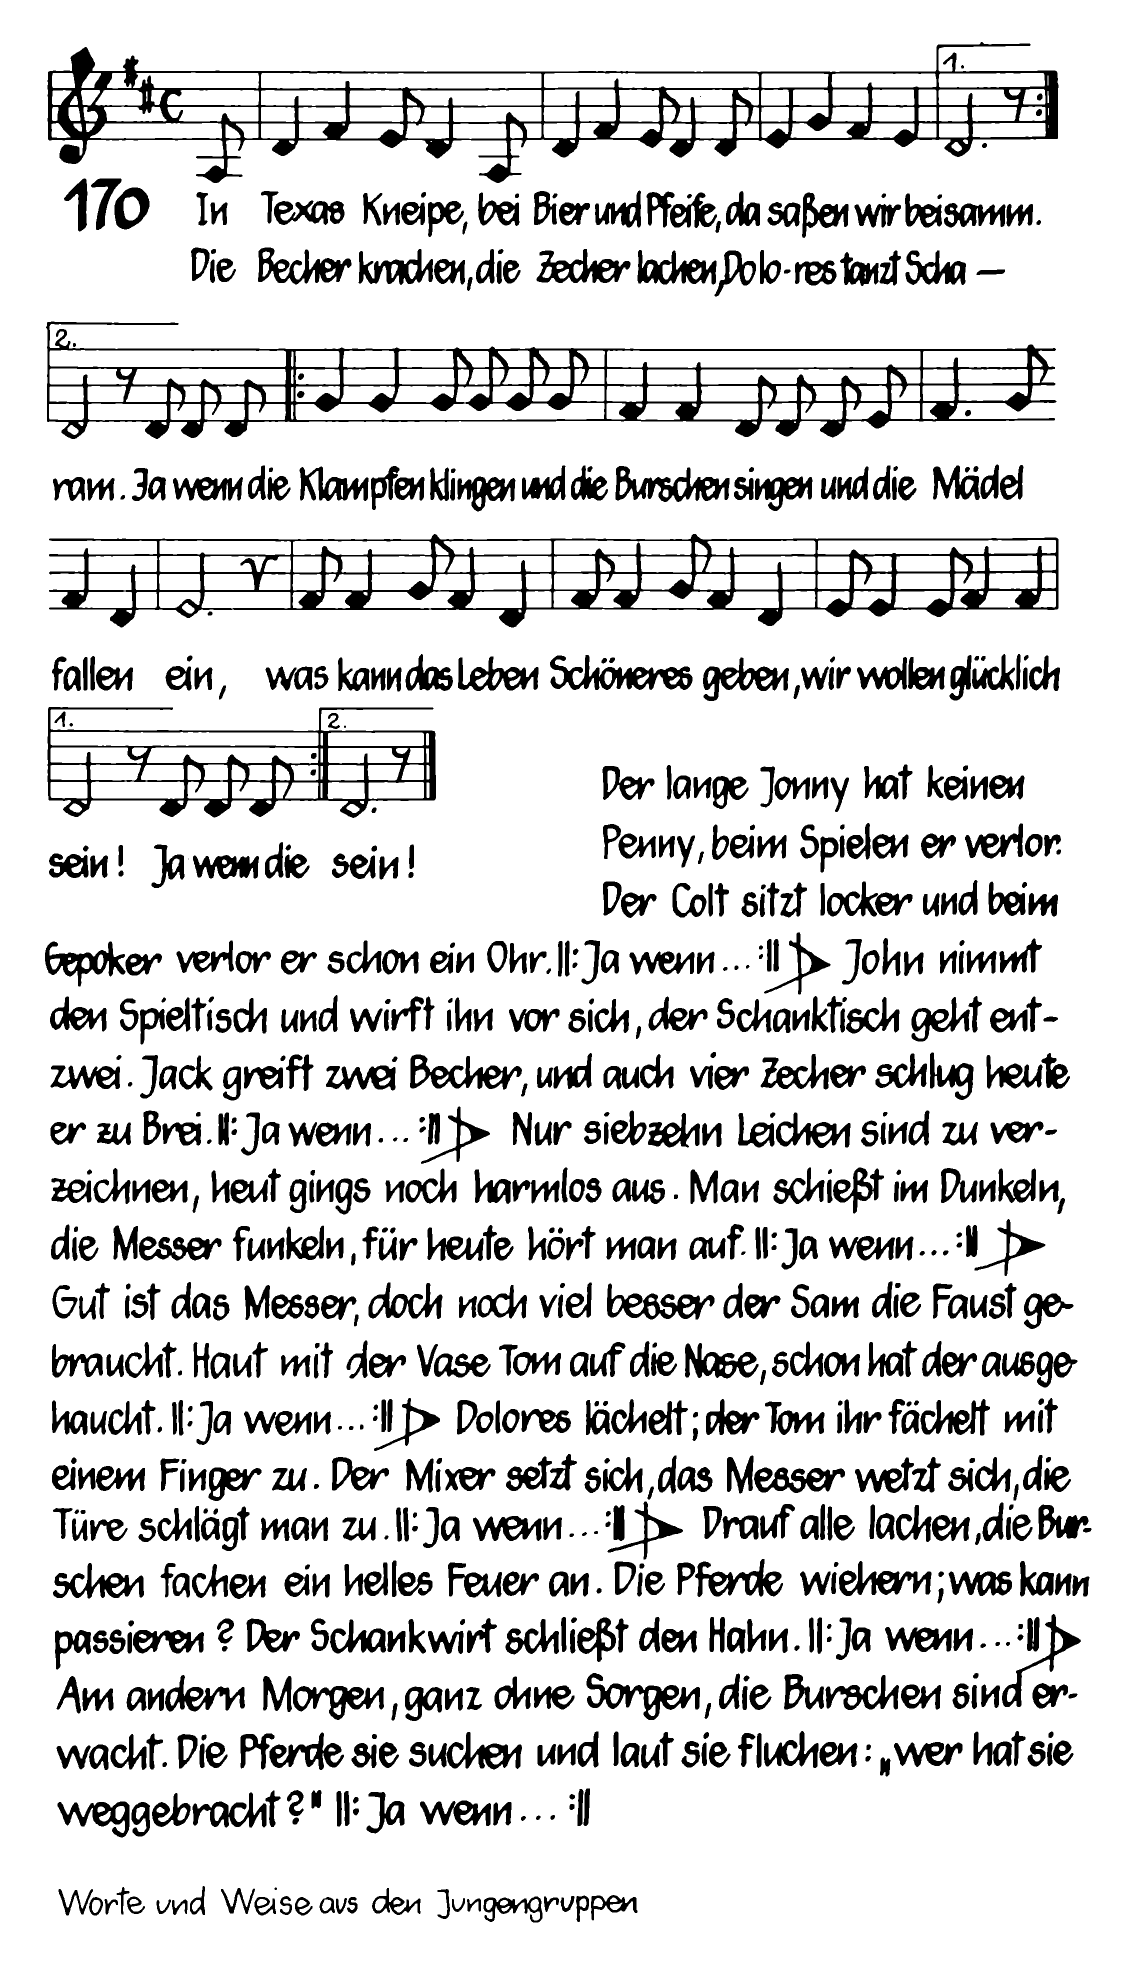 1.
170 In Texas Kneipe, bei Bier und Pfeife, da saßen wir beisamm.
Die Becher krachen, die Zecher lachen, Dolo-res tanzt Scha —
2.
ram. Ja wenn die Klampfen klingen und die Burschen singen und die Mädel
fallen ein, was kann das Leben Schöneres geben, wir wollen glücklich
1. 2.
sein! Ja wenn die sein!
Der lange Jonny hat keinen
Penny, beim Spielen er verlor.
Der Colt sitzt locker und beim
Gepoker verlor er schon ein Ohr. ||: Ja wenn... :|| John nimmt
den Spieltisch und wirft ihn vor sich, der Schanktisch geht ent-
zwei. Jack greift zwei Becher, und auch vier Zecher schlug heute
er zu Brei. ||: Ja wenn... :|| Nur siebzehn Leichen sind zu ver-
zeichnen, heut gings noch harmlos aus. Man schießt im Dunkeln,
die Messer funkeln, für heute hört man auf. ||: Ja wenn... :||
Gut ist das Messer, doch noch viel besser der Sam die Faust ge-
braucht. Haut mit der Vase Tom auf die Nase, schon hat der ausge-
haucht. ||: Ja wenn... :|| Dolores lächelt; der Tom ihr fächelt mit
einem Finger zu. Der Mixer setzt sich, das Messer wetzt sich, die
Türe schlägt man zu. ||: Ja wenn... :|| Drauf alle lachen, die Bur-
schen fachen ein helles Feuer an. Die Pferde wiehern; was kann
passieren? Der Schankwirt schließt den Hahn. ||: Ja wenn... :||
Am andern Morgen, ganz ohne Sorgen, die Burschen sind er-
wacht. Die Pferde sie suchen und laut sie fluchen: „wer hat sie
weggebracht?" ||: Ja wenn... :||
Worte und Weise aus den Jungengruppen